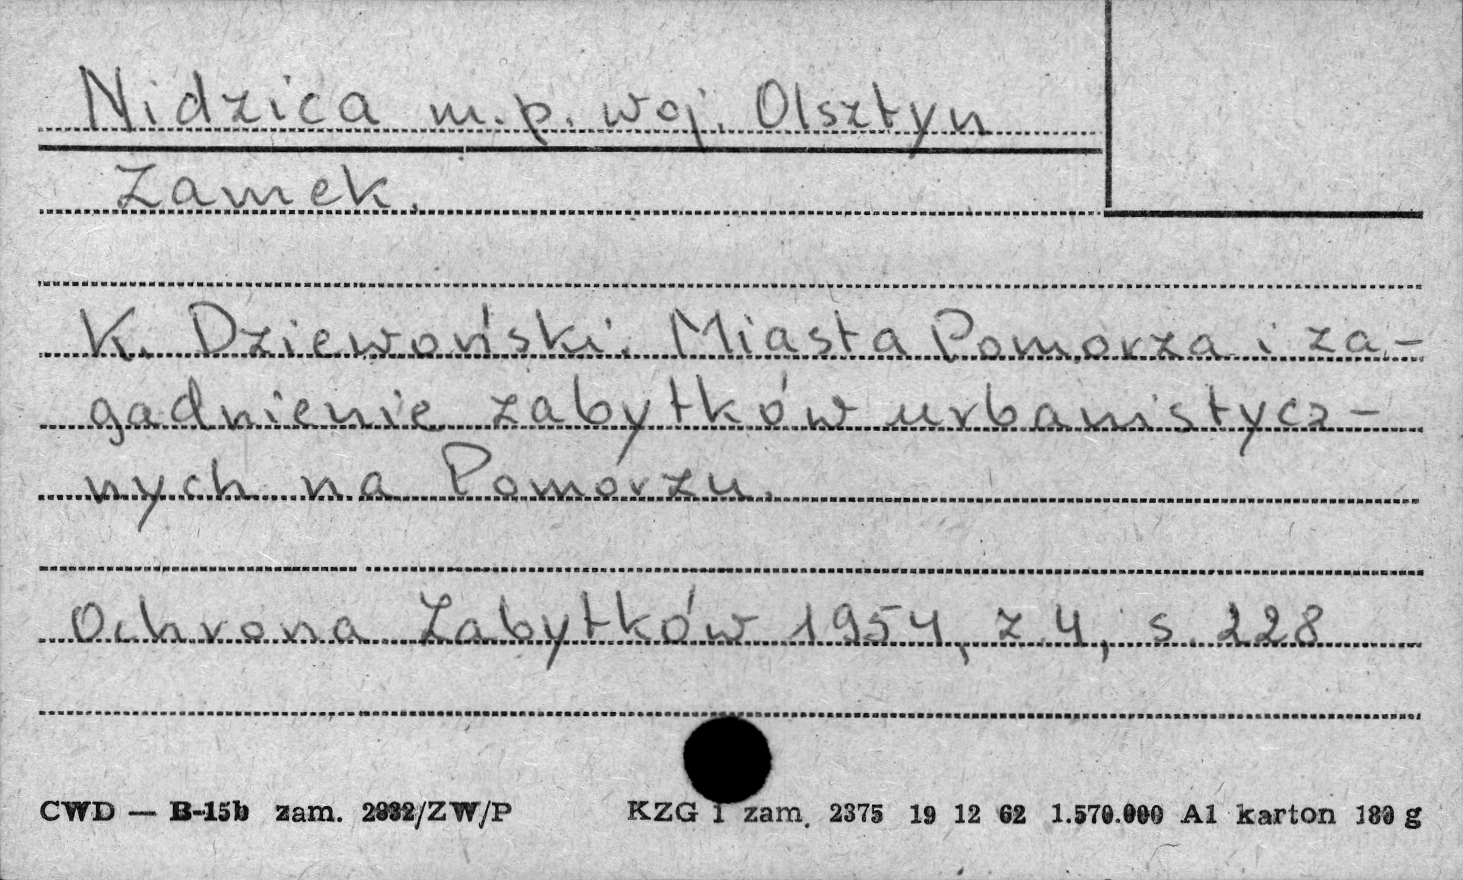 Nidzica m.p. woj. Olsztyn
Zamek.
K. Dziewoński. Miasta Pomorza i za-
gadnienie zabytków urbanistycz-
nych na Pomorzu.
Ochrona Zabytków 1954, z 4, s. 228
CWD — B-15b zam. 2932/ZW/P KZG 1 zam. 2375 19 12 62 1.570.000 A1 karton 180 g